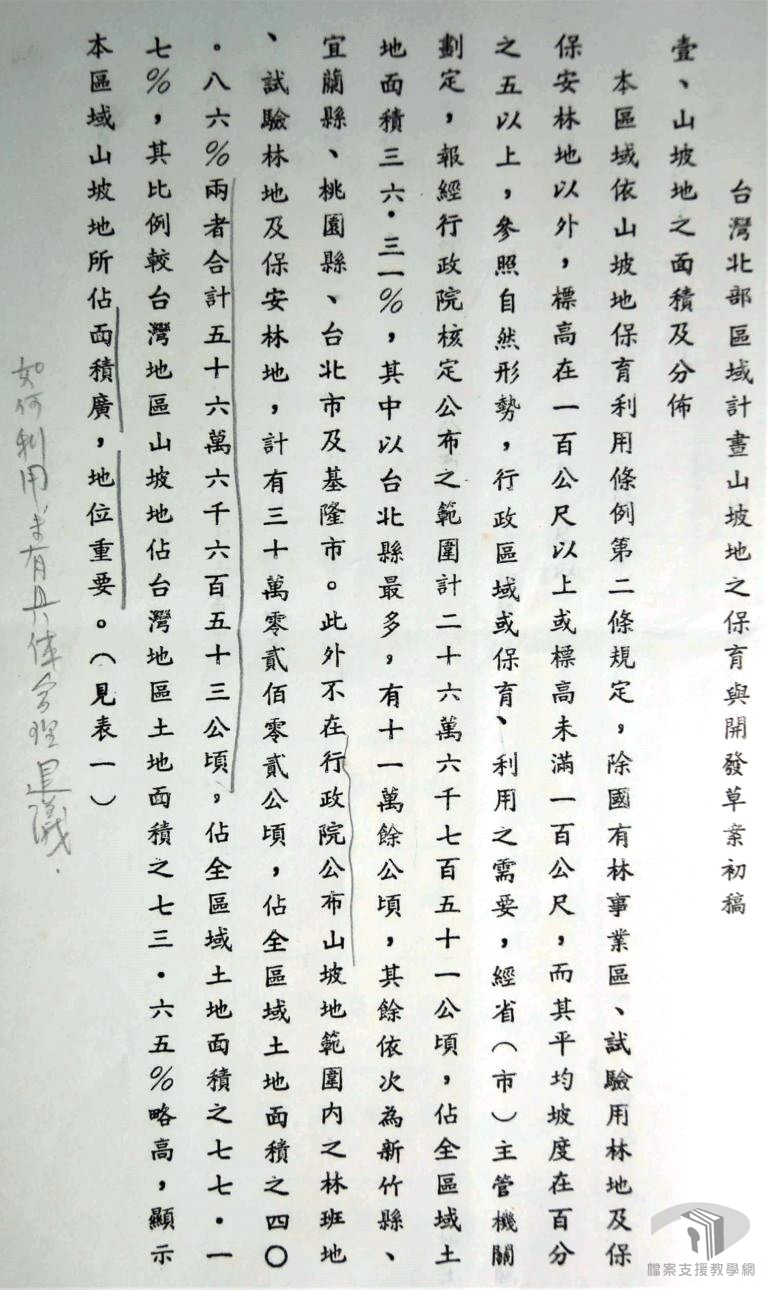 台灣北部區域計畫山坡地之保育與開發草案初稿
壹、山坡地之面積及分佈
本區域依山坡地保育利用條例第二條規定，除國有林事業區、試驗用林地及保
保安林地以外，標高在一百公尺以上或標高未滿一百公尺，而其平均坡度在百分
之五以上，參照自然形勢，行政區域或保育、利用之需要，經省（市）主管機關
劃定，報經行政院核定公布之範圍計二十六萬六千七百五十一公頃，佔全區域土
地面積三六·三一%，其中以台北縣最多，有十一萬餘公頃，其餘依次為新竹縣、
宜蘭縣、桃園縣、台北市及基隆市。此外不在行政院公布山坡地範圍內之林班地
、試驗林地及保安林地，計有三十萬零貳佰零貳公頃，佔全區域土地面積之四〇
。八六%兩者合計五十六萬六千六百五十三公頃，佔全區域土地面積之七七·一
七%，其比例較台灣地區山坡地佔台灣地區土地面積之七三·六五%略高，顯示
本區域山坡地所佔面積廣，地位重要。（見表一）
如何利用未有具体合理建議.
檔案支援教學網